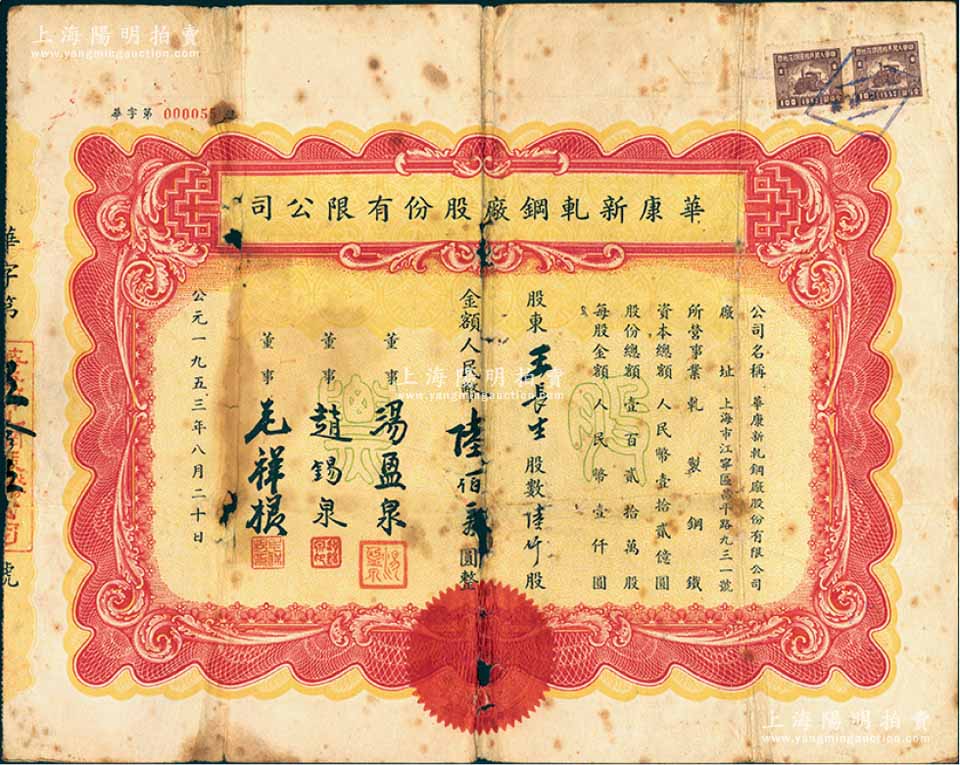 上海陽明拍賣
www.yangmingauction.com
華字第 000055 號
華康新軋鋼廠股份有限公司
公司名稱 華康新軋鋼廠股份有限公司
廠址 上海市江寧區昌平路九三一號
所營事業 軋製鋼鐵
資本總額 人民幣壹拾貳億圓
股份總額 壹百貳拾萬股
每股金額 人民幣壹仟圓
股東 王長生 股數 陸仟股
金額人民幣 陸佰萬 圓整
董事 湯盈泉
董事 趙錫泉
董事 尤祥根
公元一九五三年八月二十日
華字第
號
上海陽明拍賣
www.yangmingauction.com
上海陽明拍賣
www.yangmingauction.com